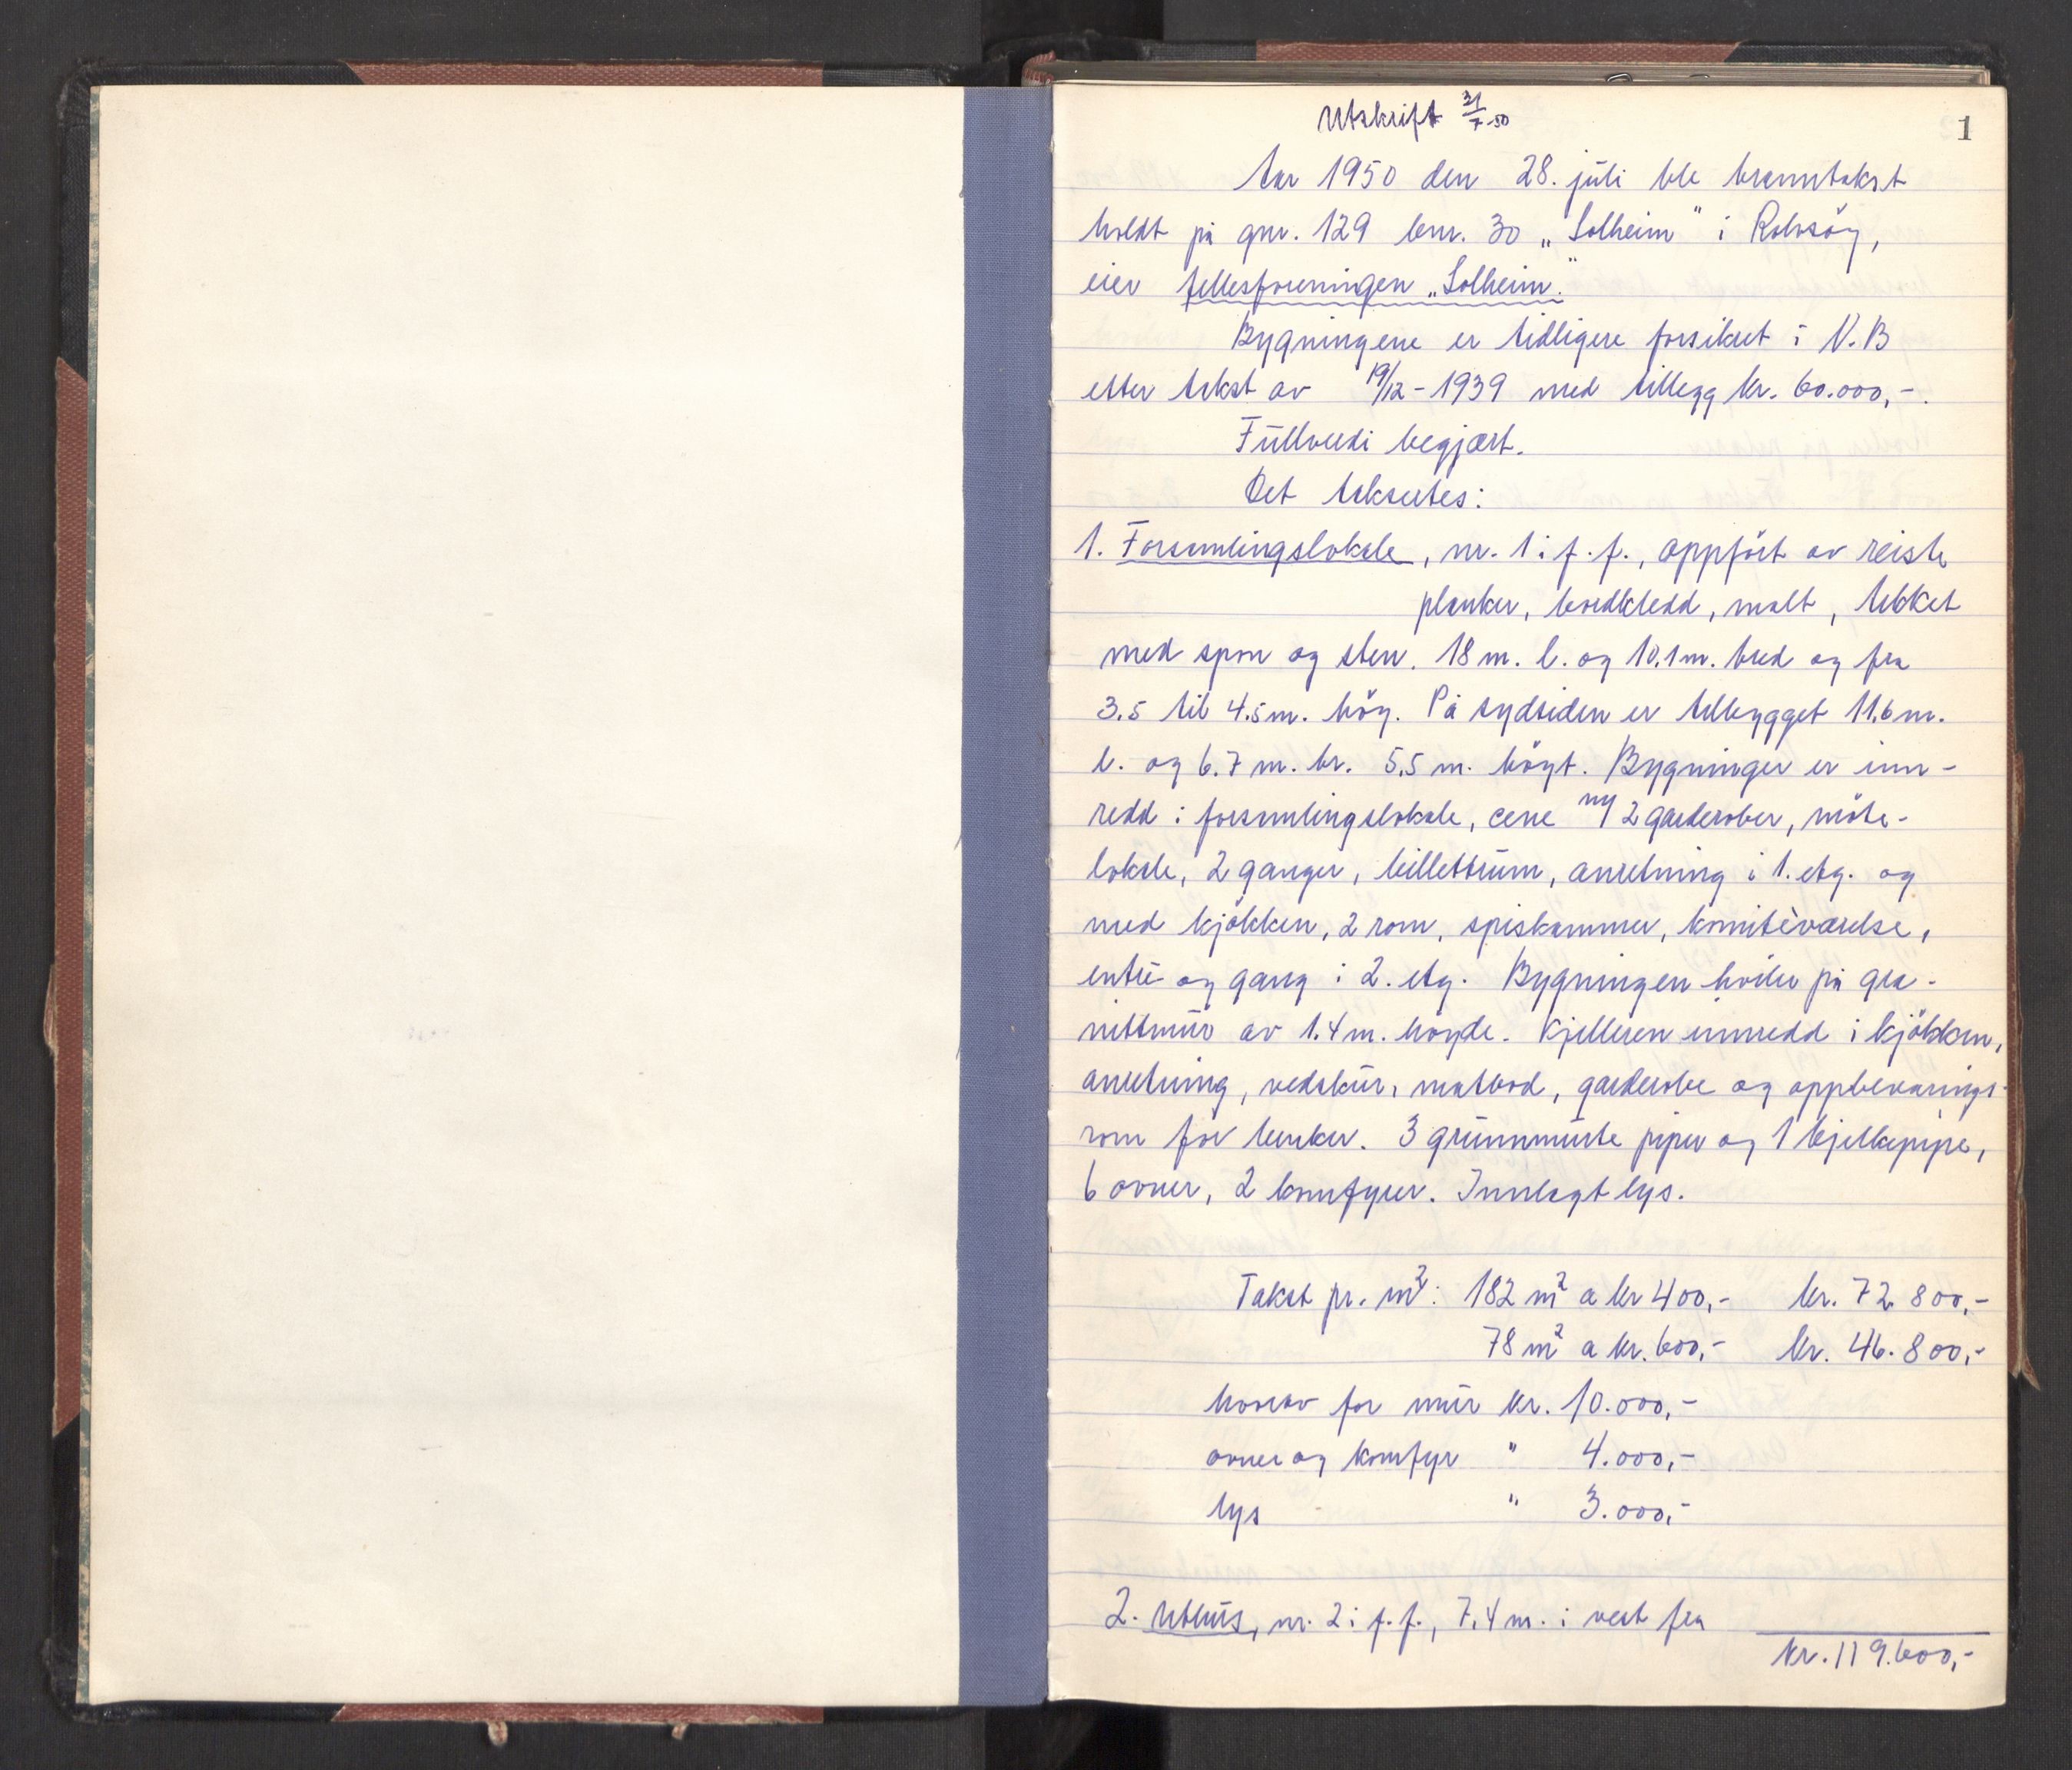 Utskrift 31/7-50
1
Aar 1950 den 28. juli ble branntakst
holdt på gnr. 129 bnr. 30 „Solheim" i Rolvsöy,
eier fellesforeningen „Solheim".
Bygningene er tidligere forsikret i N.B
etter takst av 19/12-1939 med tillegg kr. 60.000,-.
Fullverdi begjært.
Det takseres:
1. Forsamlingslokale, nr. 1 i f.f., oppfört av reiste
planker, bordkledd, malt, tekket
med spon og sten. 18 m. l. og 10.1 m. bred og fra
3.5 til 4.5 m. höy. På sydsiden er tilbygget 11.6 m.
l. og 6.7 m. br. 5.5 m. höyt. Bygninger er inn-
redd i forsamlingslokale, cene ny 2 garderober, möte-
lokale, 2 ganger, billettrum, anretning i 1. etg. og
med kjökken, 2 rom, spiskammer, komitèværelse,
entre og gang i 2. etg. Bygningen hviler på gra-
nittmur av 1.4 m. höyde. Kjelleren innredd i kjökken,
anretning, vedskur, matbod, garderobe og oppbevarings-
rom for benker. 3 grunnmurte piper og 1 bjelkepipe,
6 ovner, 2 komfyrer. Innlagt lys.
Takst pr. m²: 182 m² a kr 400,- kr. 72.800,-
78 m² a kr. 600,- kr. 46.800,-
hvorav for mur kr. 10.000,-
ovner og komfyr " 4.000,-
lys " 3.000,-
2. Uthus, nr. 2 i f.f., 7.4 m. i vest fra
kr. 119.600,-